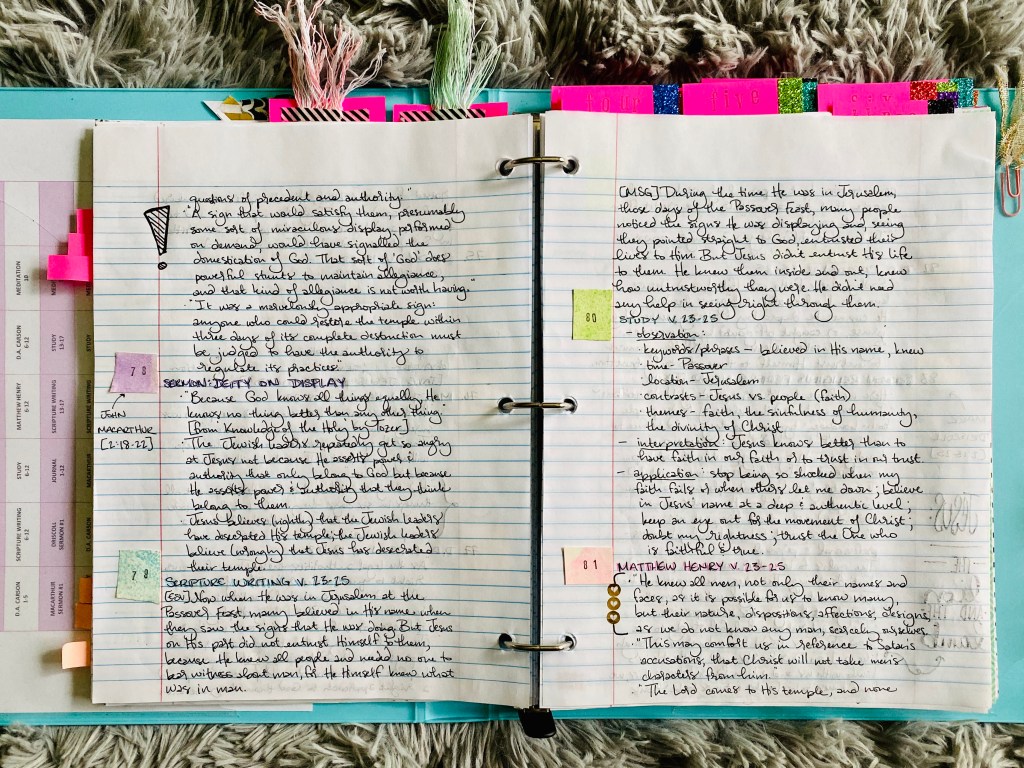 questions of precedent and authority."
• "A sign that would satisfy them, presumably
some sort of miraculous display performed
on demand, would have signalled the
domestication of God. That sort of 'God' does
powerful stunts to maintain allegiance,
and that kind of allegiance is not worth having."
• "It was a marvelously appropriate sign:
anyone who could restore the temple within
three days of its complete destruction must
be judged to have the authority to
regulate its practices."
78
SERMON: DEITY ON DISPLAY
JOHN
MACARTHUR
[2-18-22]
• "Because God knows all things equally, He
knows no thing better than any other thing."
[from Knowledge of the Holy by Tozer]
• The Jewish leaders repeatedly get so angry
at Jesus not because He asserts power &
authority that only belong to God but because
He asserts power & authority that they think
belong to them.
• Jesus believes (rightly) that the Jewish leaders
have desecrated His temple; the Jewish leaders
believe (wrongly) that Jesus has desecrated
their temple.
79
SCRIPTURE WRITING V. 23-25
[ESV] Now when He was in Jerusalem at the
Passover Feast, many believed in His name when
they saw the signs that He was doing. But Jesus
on His part did not entrust Himself to them,
because He knew all people and needed no one to
bear witness about man, for He Himself knew what
was in man.
[MSG] During the time He was in Jerusalem,
those days of the Passover Feast, many people
noticed the signs He was displaying and, seeing
they pointed straight to God, entrusted their
lives to Him. But Jesus didn't entrust His life
to them. He knew them inside and out, knew
how untrustworthy they were. He didn't need
any help in seeing right through them.
80
STUDY V. 23-25
- observation:
• keywords/phrases - believed in His name, knew
• time - Passover
• location - Jerusalem
• contrasts - Jesus vs. people (faith)
• themes - faith, the sinfulness of humanity,
the divinity of Christ
- interpretation: Jesus knows better than to
have faith in our faith or to trust in our trust
- application: stop being so shocked when my
faith fails or when others let me down; believe
in Jesus' name at a deep & authentic level;
keep an eye out for the movement of Christ;
doubt my rightness; trust the One who
is faithful & true.
81
MATTHEW HENRY V. 23-25
• "He knew all men, not only their names and
faces, as it is possible for us to know many,
but their nature, dispositions, affections, designs,
as we do not know any man, scarcely ourselves."
• "This may comfort us in reference to Satan's
accusations, that Christ will not take men's
characters from him."
• "The Lord comes to His temple, and none
MEDITATION
D.A. CARSON
6-12
STUDY
13-17
MATTHEW HENRY
6-12
SCRIPTURE WRITING
13-17
STUDY
6-12
JOURNAL
1-12
MACARTHUR
SCRIPTURE WRITING
6-12
DRISCOLL
SERMON #1
D.A. CARSON
D.A. CARSON
1-5
MACARTHUR
SERMON #1